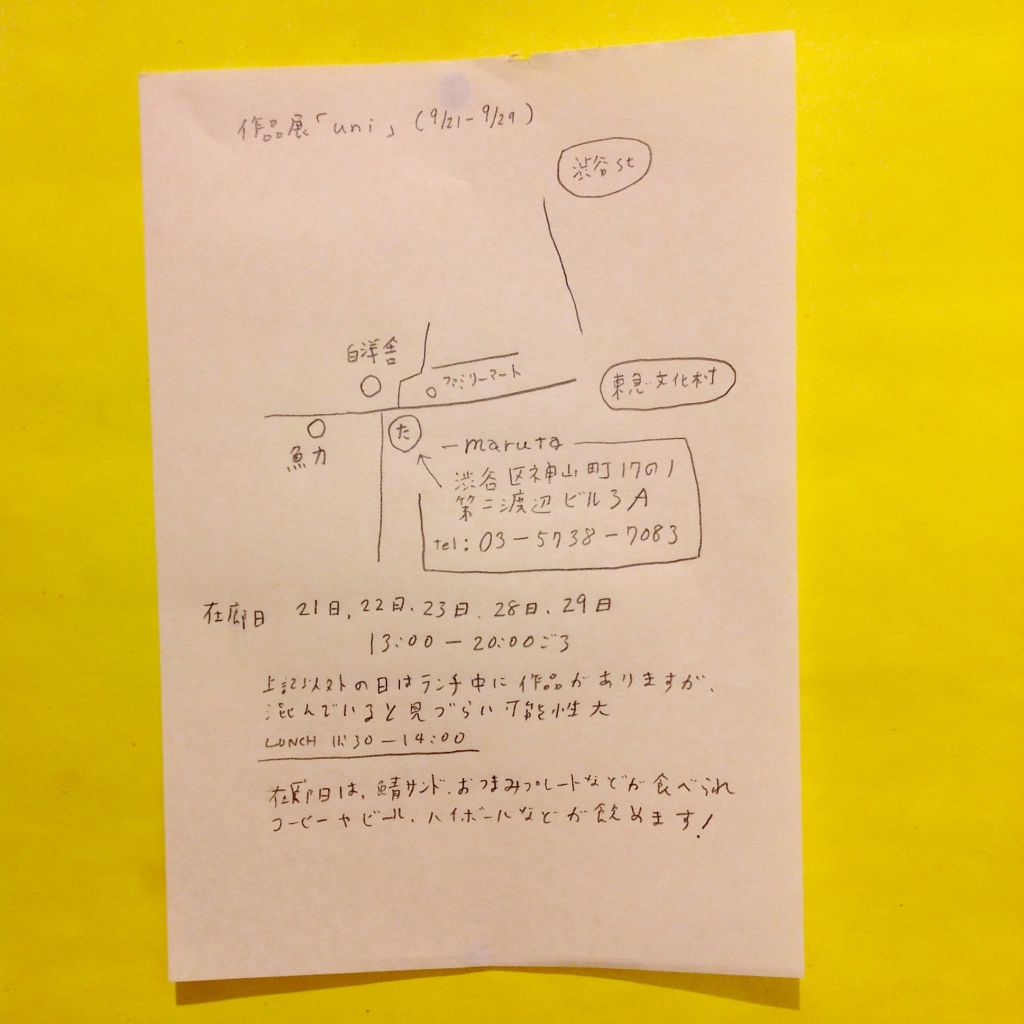 作品展「uni」(9/21-9/29)
渋谷st
白洋舎
ファミリーマート
東急・文化村
魚力
た
maruta
渋谷区神山町17の1
第二渡辺ビル3A
tel:03-5738-7083
在廊日 21日,22日、23日、28日、29日
13:00-20:00ごろ
上記以外の日はランチ中に作品がありますが、
混んでいると見づらい可能性大
LUNCH 11:30-14:00
在廊日は、鯖サンド、おつまみプレートなどが食べられ
コーヒーやビール、ハイボールなどが飲めます!